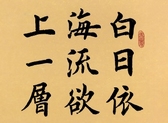 白日依
海流欲
上一層